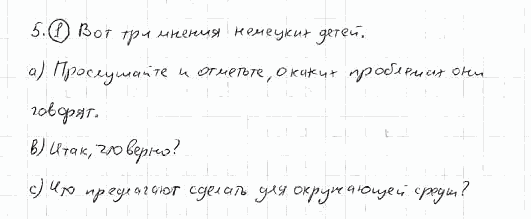 5. ① Вот три мнения немецких детей.
а) Прослушайте и отметьте, о каких проблемах они
говорят.
в) Итак, что верно?
с) Что предлагают сделать для окружающей среды?